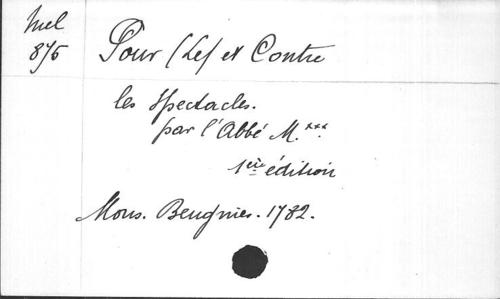 Mel
875
Pour (Le) et Contre
les Spectacles.
par l'Abbé M.***
1ère édition
Mons. Beugnies. 1782.